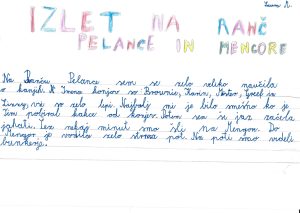 Luna A.
IZLET NA RANČ
PELANCE IN MENGORE
Na Ranču Pelance sem se zelo veliko naučila
o konjih. Imena konjev so: Brownie, Karin, Gašo, in
Lizzy, vsi so zelo lepi. Najbolj mi je bilo smešno ko je
Tim pobiral kakce od konjev. Potem sem se jaz začela
jahati, čez nekaj minut smo šli na Mengor. Do
Mengor je vodila zelo strma pot. Na poti smo videli
bunkerje.